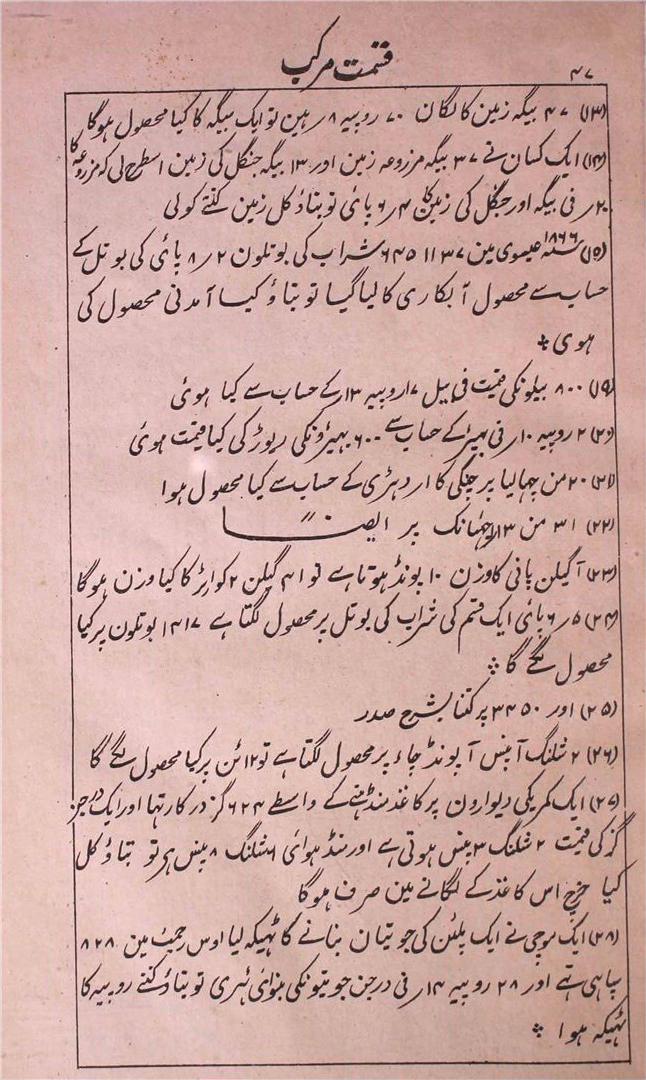 ۴۷
قسمت مرکب
(۱۳) ۴۷ بیگہ زمین کا لگان ۷۰ روپیہ ۸؍ ہین تو ایک بیگہ کا کیا محصول ہوگا
(۱۴) ایک کسان نے ۳۷ بیگہ مزروعہ زمین اور ۱۳ بیگہ جنگل کی زمین اسطرح لی کہ مزروعہ کا
۲؍ فی بیگہ اور جنگل کی زمین کا ۴؍ ۶ پائی تو بتاؤ کل زمین کتنے کو لی
(۱۵) ۱۸۶۶ عیسوی مین شراب کی بوتلون ۲؍ ۸ پائی کی بوتل کے
حساب سے محصول آبکاری کا لیا گیا تو بتاؤ کیا آمدنی محصول کی
ہوی ❖
(۱۹) ۸۰۰ بیلونکی قیمت فی بیل ۱۷ روپیہ ۱۳؍ کے حساب سے کیا ہوئی
(۲۰) ۲ روپیہ ۱۰؍ فی بھیڑ کے حساب سے ۶۰۰ بھیڑونکی ریوڑ کی کیا قیمت ہوئی
(۲۱) ۲۰ من چھالیا پر چنگی کا ۱؍ دہڑی کے حساب سے کیا محصول ہوا
(۲۲) ۳۱ من ۱۳ چھٹانک پر ایضاً
(۲۳) آ گیلن پانی کا وزن ۱۰ پونڈ ہوتا ہے تو ۴۱ گیلن ۲ کوارٹر کا کیا وزن ہوگا
(۲۴) ۵؍ ۶ پائی ایک قسم کی شراب کی بوتل پر محصول لگتا ہے ۱۴۱۷ بوتلون پر کیا
محصول لگے گا ❖
(۲۵) اور ۳۴۵۰ پر کتنا بشرح صدر
(۲۶) ۲ شلنگ آ پنس آ پونڈ چاء پر محصول لگتا ہے تو ۱۲ ٹن پر کیا محصول لگے گا
(۲۷) ایک کمریکی دیوارون پر کاغذ منڈہنے کے واسطے ۶۲۴ گز درکار تھا اور ایک درجن
گز کی قیمت ۲ شلنگ ۳ پنس ہوتی ہے اور منڈہوائی ۶ شلنگ ۸ پنس ہر تو بتاؤ کل
کیا خرچ اس کاغذ کے لگانے مین صرف ہوگا
(۲۸) ایک موچی نے ایک پلٹن کی جوتیان بنانے کا ٹھیکہ لیا اوس رجمٹ مین ۸۲۸
سپاہی تھے اور ۲۸ روپیہ ۱۴؍ فی درجن جوتیونکی بنوائی ٹہری تو بتاؤ کتنے روپیہ کا
ٹھیکہ ہوا ❖